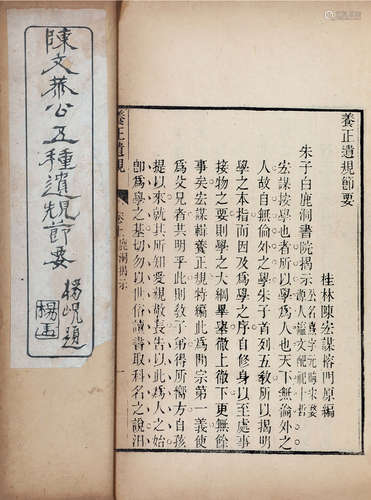 陳文恭公五種遺規節要
楊峴題
養正遺規節要
桂林陳宏謀榕門原編
朱子白鹿洞書院揭示
公名熹字元晦朱婺
源人諡文配祀十哲
宏謀按學也者所以學為人也天下無倫外之
人故自無倫外之學朱子首列五教所以揭明
學之本指而因及為學之序自修身以至處事
接物之要則學之大綱畢舉徹上徹下更無餘
事矣宏謀輯養正規特編此為開宗第一義使
為父兄者其明乎此則教子弟得所嚮方自孩
提以來就其所知愛親敬長告以此為人之始
卽為學之基切勿以世俗讀書取科名之說汨
養正遺規
卷上鹿洞揭示
一